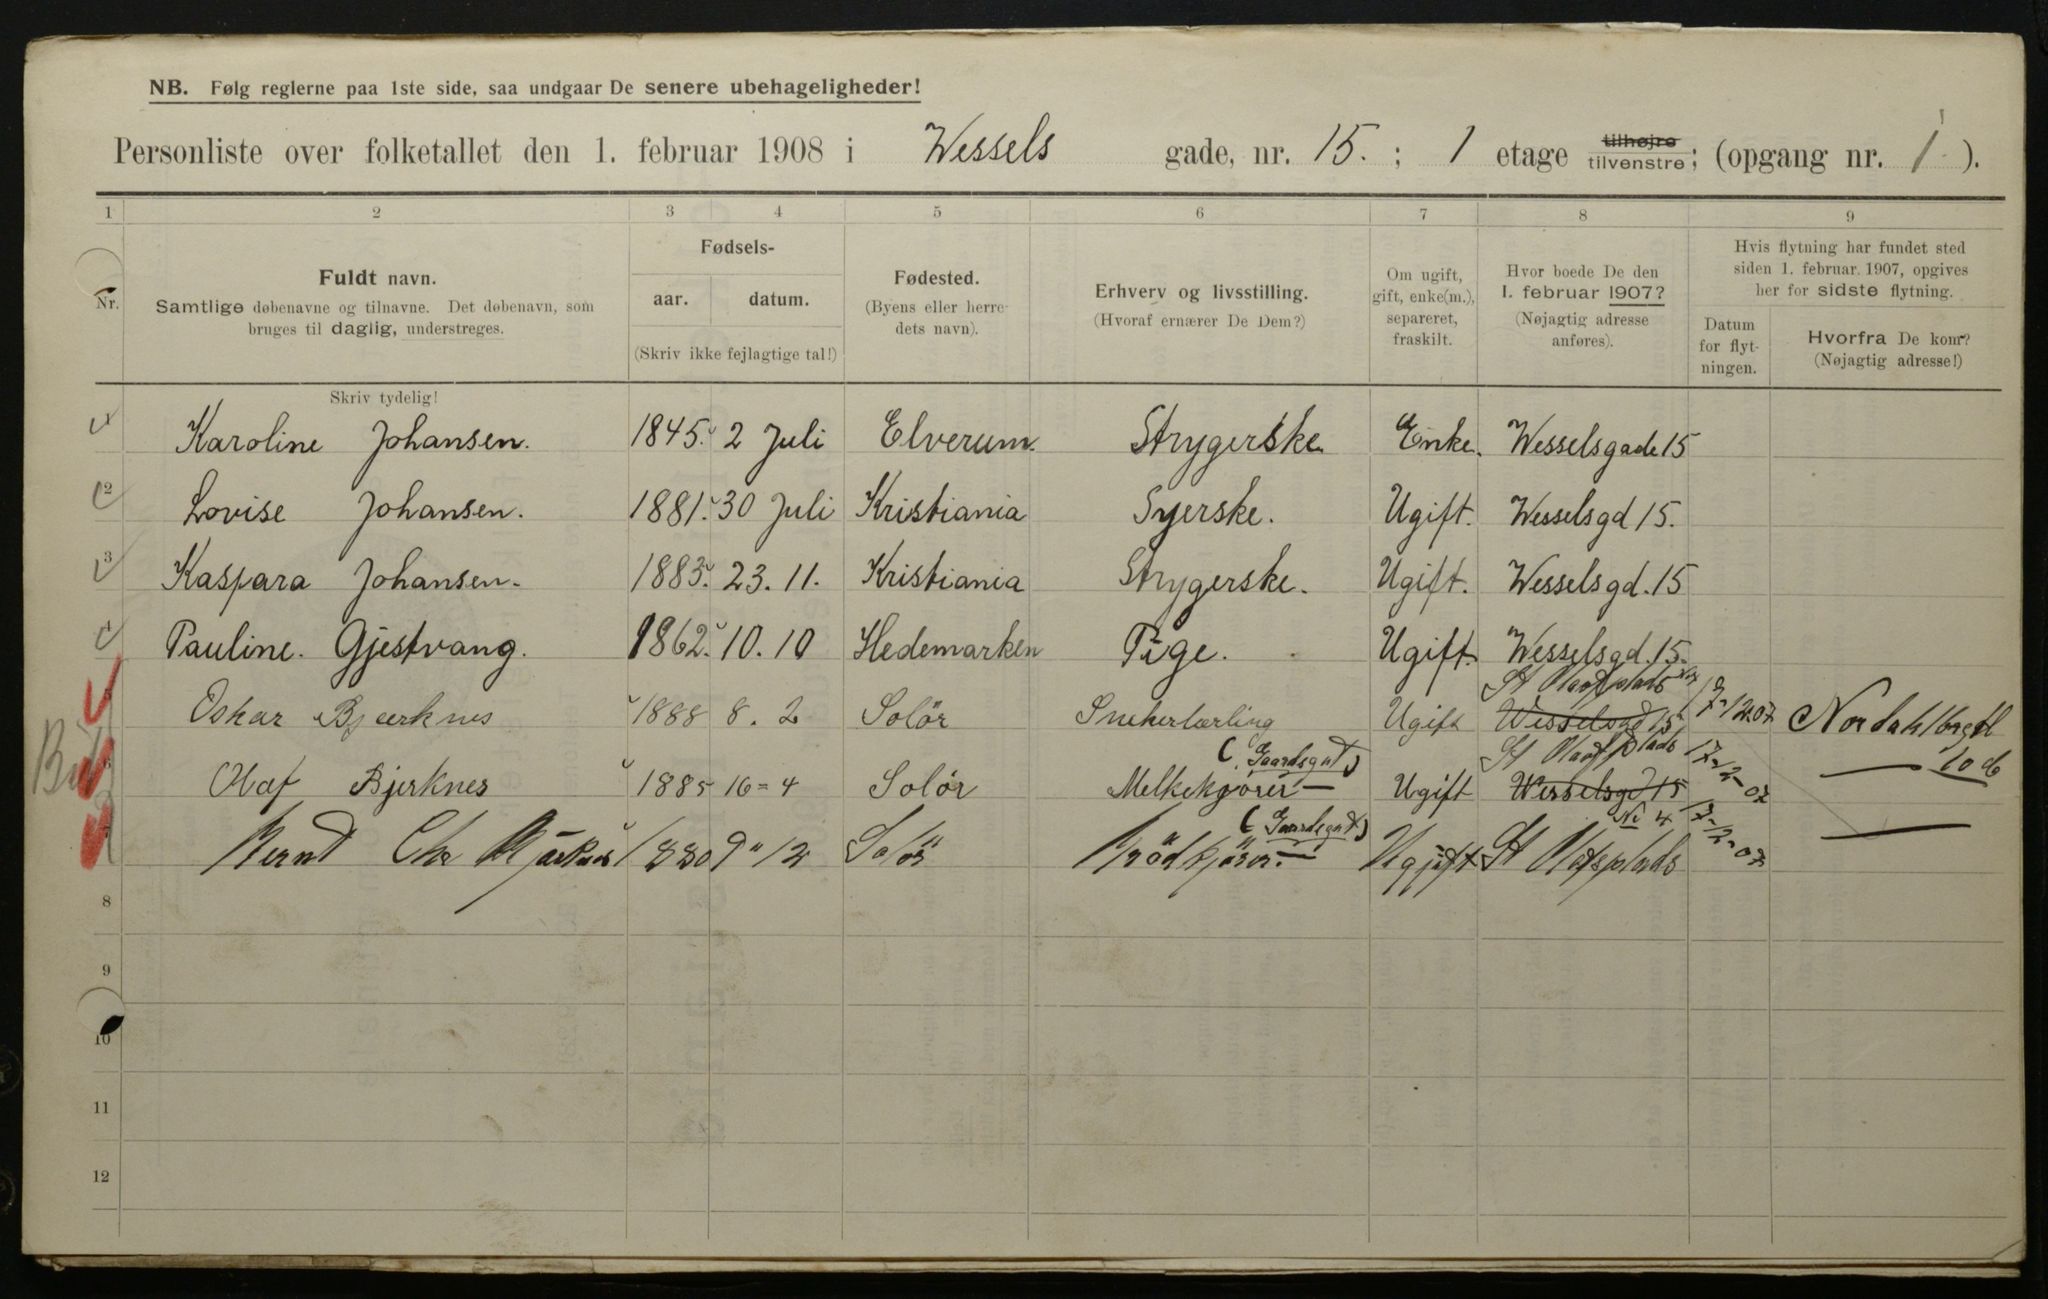 NB. Følg reglerne paa 1ste side, saa undgaar De senere ubehageligheder!
Personliste over folketallet den 1. februar 1908 i Wessels gade, nr. 15. ; 1 etage tilhøjre tilvenstre; (opgang nr. 1 ).
1 2 3 4 5 6 7 8 9
Nr.
Fuldt navn.
Samtlige døbenavne og tilnavne. Det døbenavn, som
bruges til daglig, understreges.
Skriv tydelig!
Fødsels-
aar. datum.
(Skriv ikke fejlagtige tal!)
Fødested.
(Byens eller herre-
dets navn).
Erhverv og livsstilling.
(Hvoraf ernærer De Dem?)
Om ugift,
gift, enke(m.),
separeret,
fraskilt.
Hvor boede De den
1. februar 1907?
(Nøjagtig adresse
anføres).
Hvis flytning har fundet sted
siden 1. februar 1907, opgives
her for sidste flytning.
Datum
for flyt-
ningen.
Hvorfra De kom?
(Nøjagtig adresse!)
1 Karoline Johansen. 1845. 2 Juli Elverum. Strygerske Enke. Wesselsgade 15
2 Lovise Johansen. 1881. 30 Juli Kristiania Syerske. Ugift. Wesselsgd 15.
3 Kaspara Johansen. 1883. 23. 11. Kristiania Strygerske. Ugift. Wesselsgd. 15
4 Pauline. Gjestvang. 1862. 10. 10 Hedemarken Pige. Ugift. Wesselsgd. 15.
St Olafsplads
5 Oskar Bjerknes 1888 8. 2 Solör Snekerlærling Ugift Wesselsgd 15 17-12-07
(Gaardsgut) St Olafsplads
6 Olaf Bjerknes 1885 16 = 4 Solör Melkekjører Ugift Wesselsgd 15 17-12-07
(Gaardsgut) No 4
7 Bernt Chr Bjerknes 1880 9" 12 Solör Brödkjører. Ugift St Olafsplads 17-12-07
8
9
10
11
12